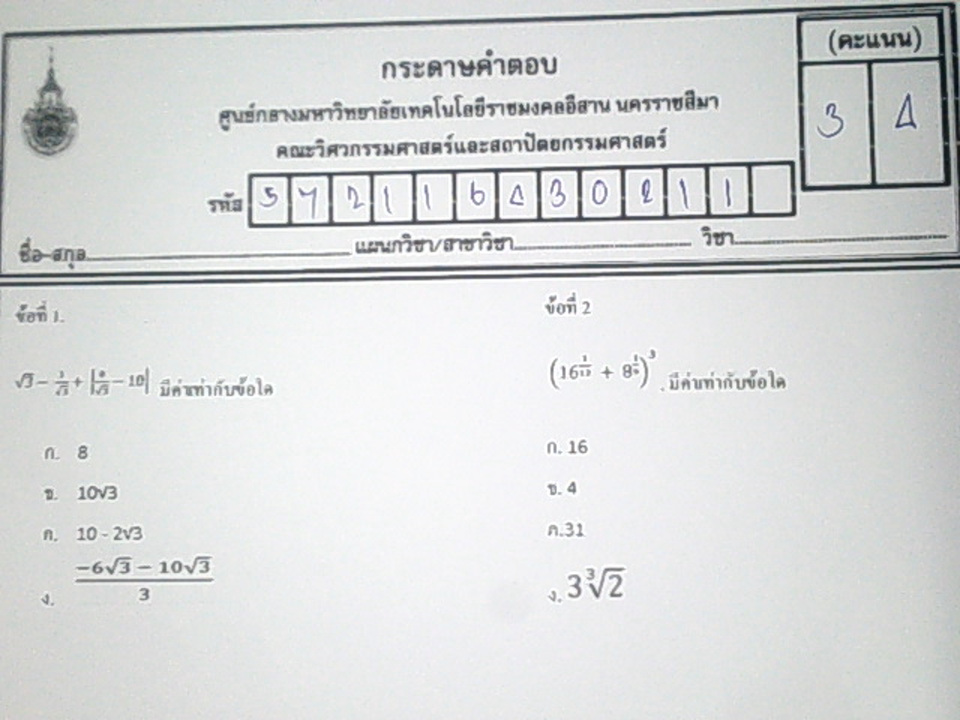 (คะแนน)
3 4
กระดาษคำตอบ
ศูนย์กลางมหาวิทยาลัยเทคโนโลยีราชมงคลอีสาน นครราชสีมา
คณะวิศวกรรมศาสตร์และสถาปัตยกรรมศาสตร์
รหัส 5 7 2 1 1 6 4 3 0 2 1 1
ชื่อ-สกุล แผนกวิชา/สาขาวิชา วิชา
ข้อที่ 1.
√3 − 3/√3 + | /√3 − 10| มีค่าเท่ากับข้อใด
ก. 8
ข. 10√3
ค. 10 - 2√3
ง. (−6√3 − 10√3)/3
ข้อที่ 2
(16 + 8)³ . มีค่าเท่ากับข้อใด
ก. 16
ข. 4
ค.31
ง. 3∛2